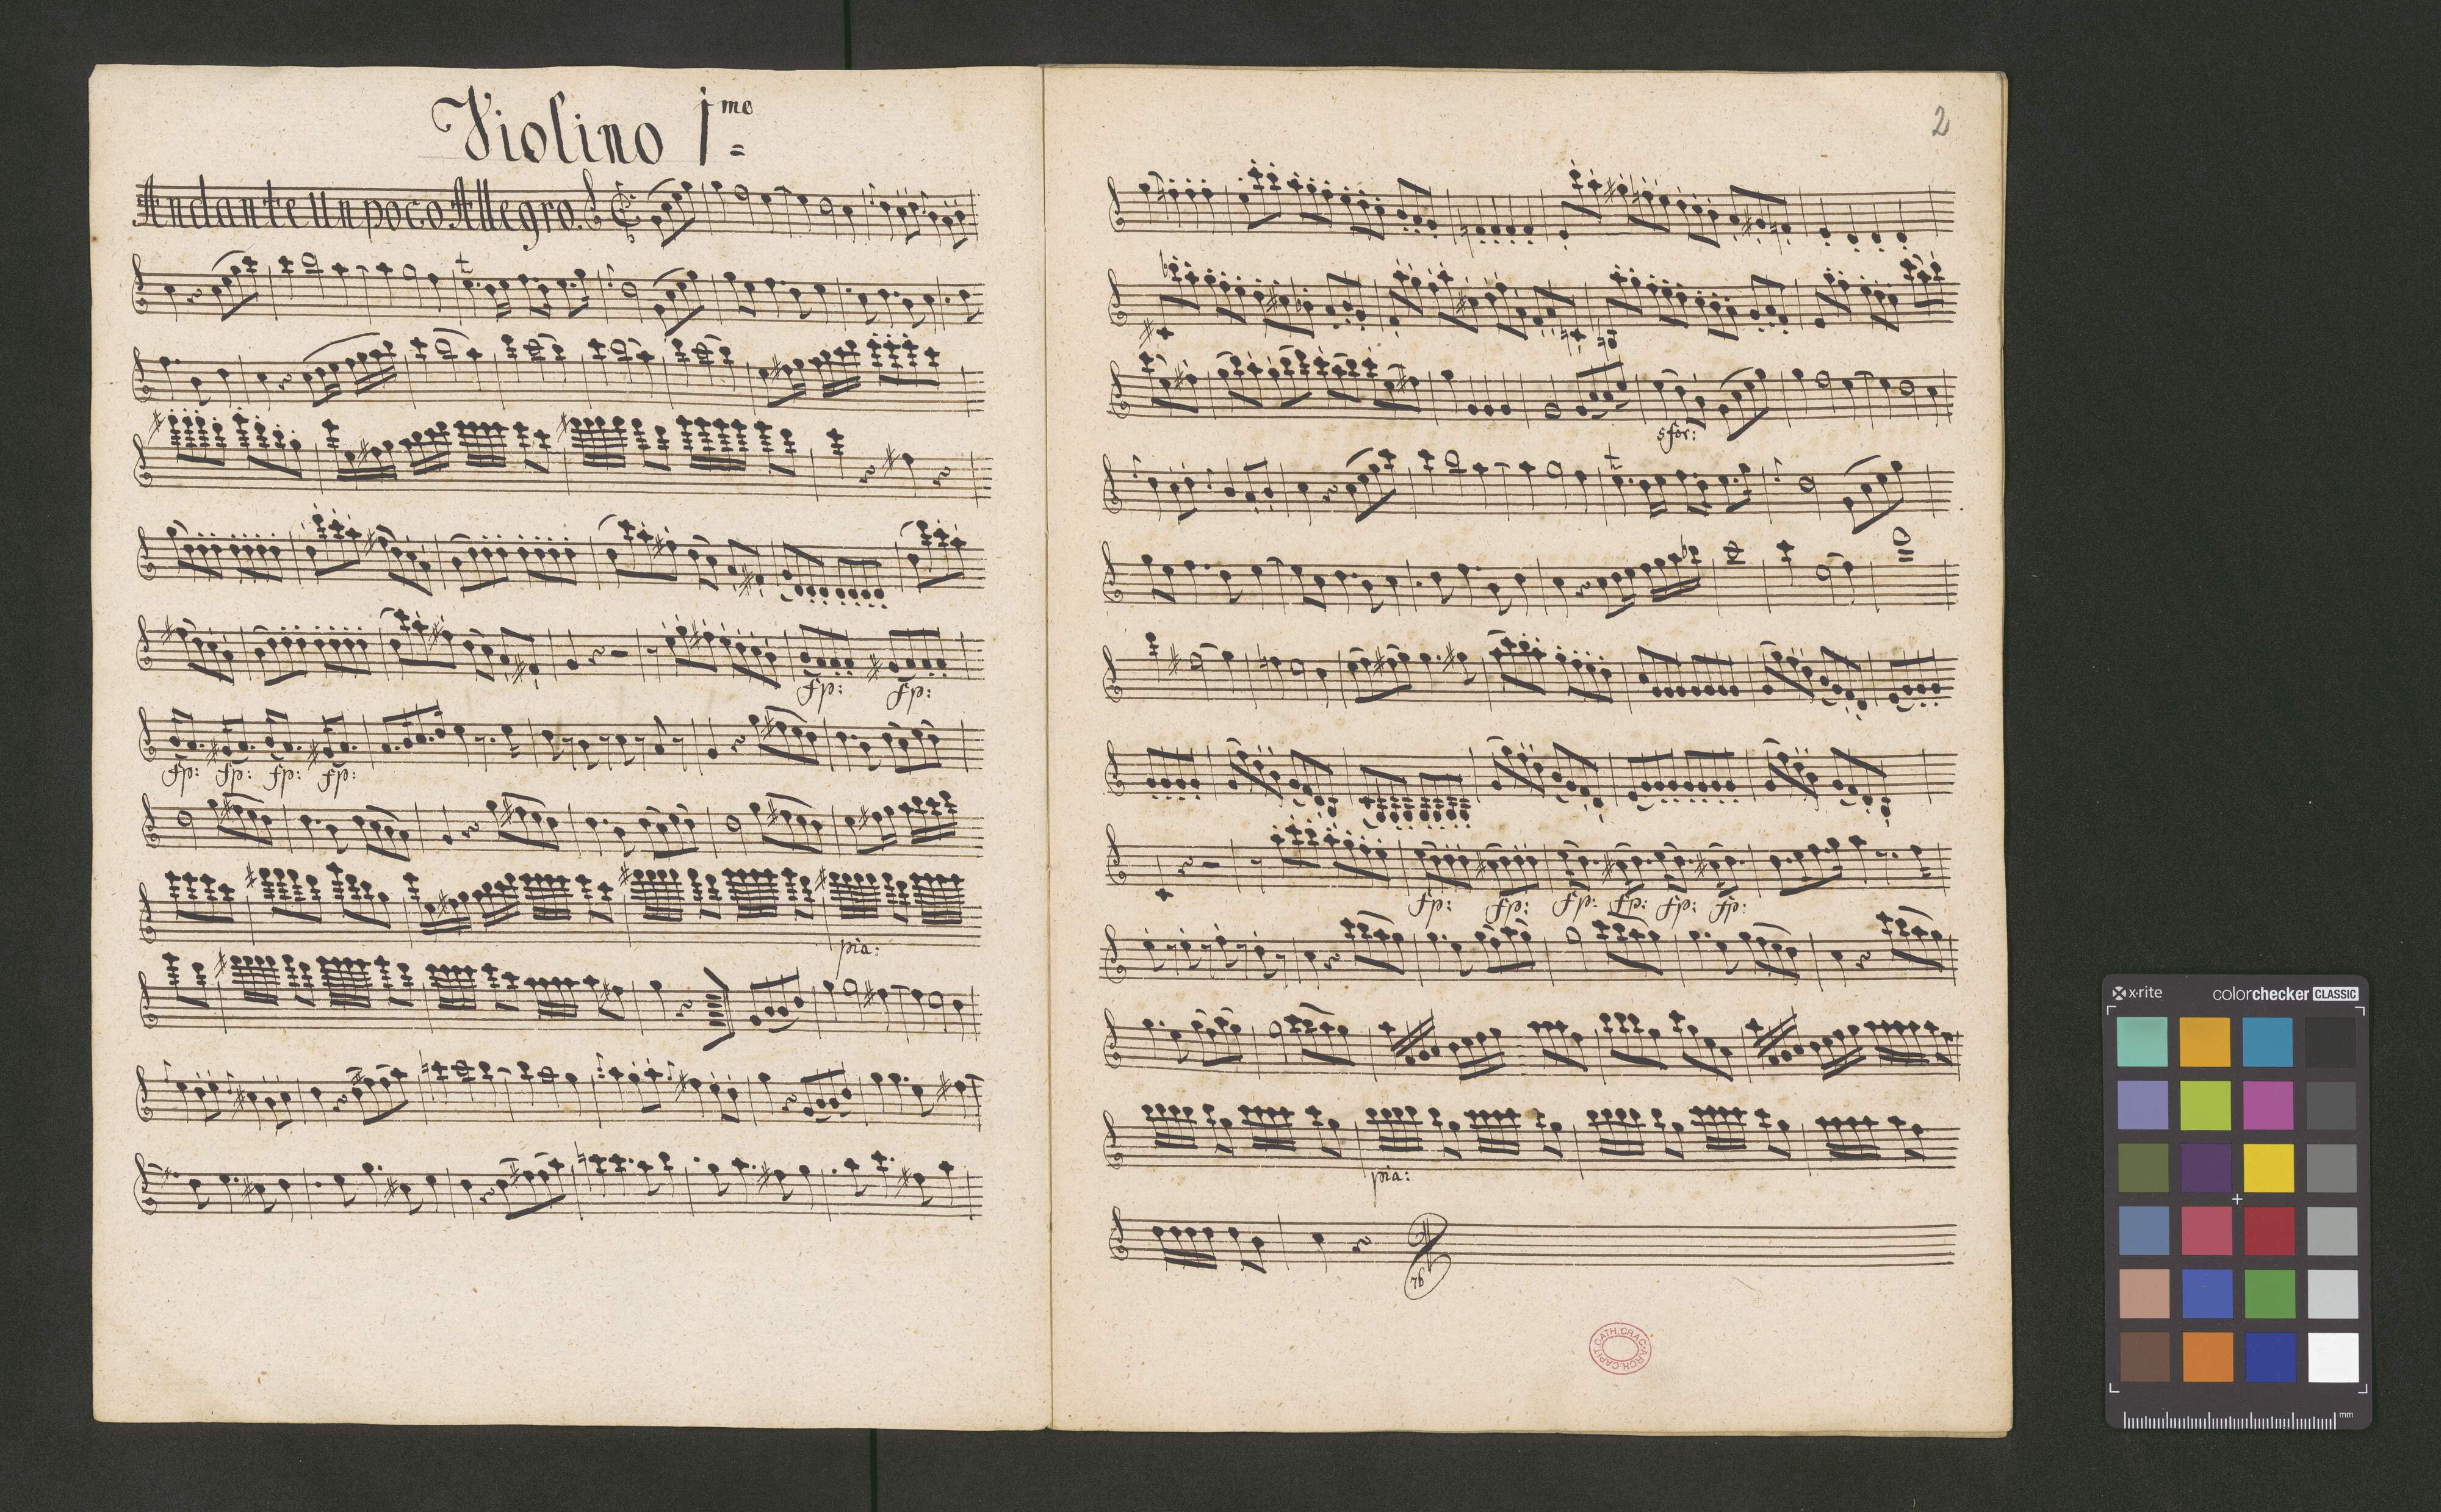 Violino 1mo
Andante Un poco Allegro.
fp: fp:
fp: fp: fp: fp:
pia:
2
sfor:
fp: fp: fp: fp: fp: fp:
pia:
76
ARCH. CAPIT. CATH. CRAC.
x-rite colorchecker CLASSIC
mm